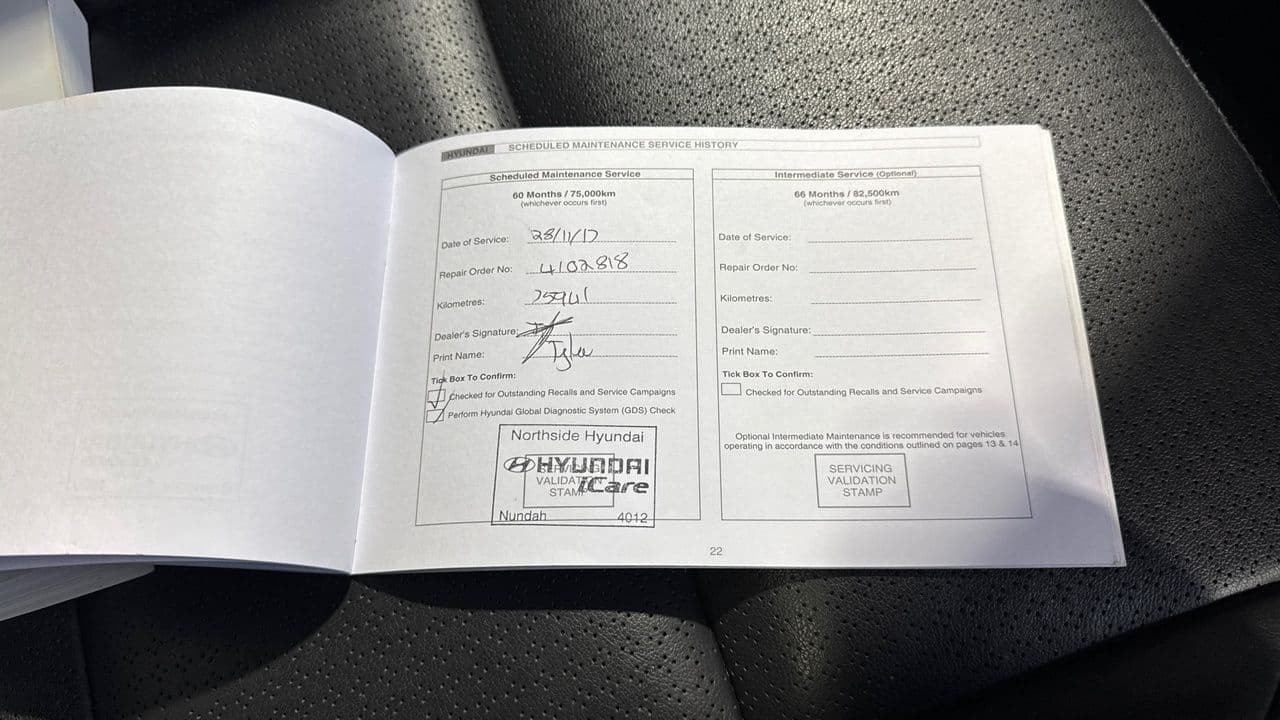 HYUNDAI SCHEDULED MAINTENANCE SERVICE HISTORY
Scheduled Maintenance Service
60 Months / 75,000km
(whichever occurs first)
Date of Service: 28/11/17
Repair Order No: 4102818
Kilometres: 75941
Dealer's Signature:
Print Name: Tyler
Tick Box To Confirm:
Checked for Outstanding Recalls and Service Campaigns
Perform Hyundai Global Diagnostic System (GDS) Check
Northside Hyundai
HYUNDAI
SERVICING
VALIDATION
iCare
STAMP
Nundah 4012
Intermediate Service (Optional)
66 Months / 82,500km
(whichever occurs first)
Date of Service:
Repair Order No:
Kilometres:
Dealer's Signature:
Print Name:
Tick Box To Confirm:
Checked for Outstanding Recalls and Service Campaigns
Optional Intermediate Maintenance is recommended for vehicles
operating in accordance with the conditions outlined on pages 13 & 14
SERVICING
VALIDATION
STAMP
22